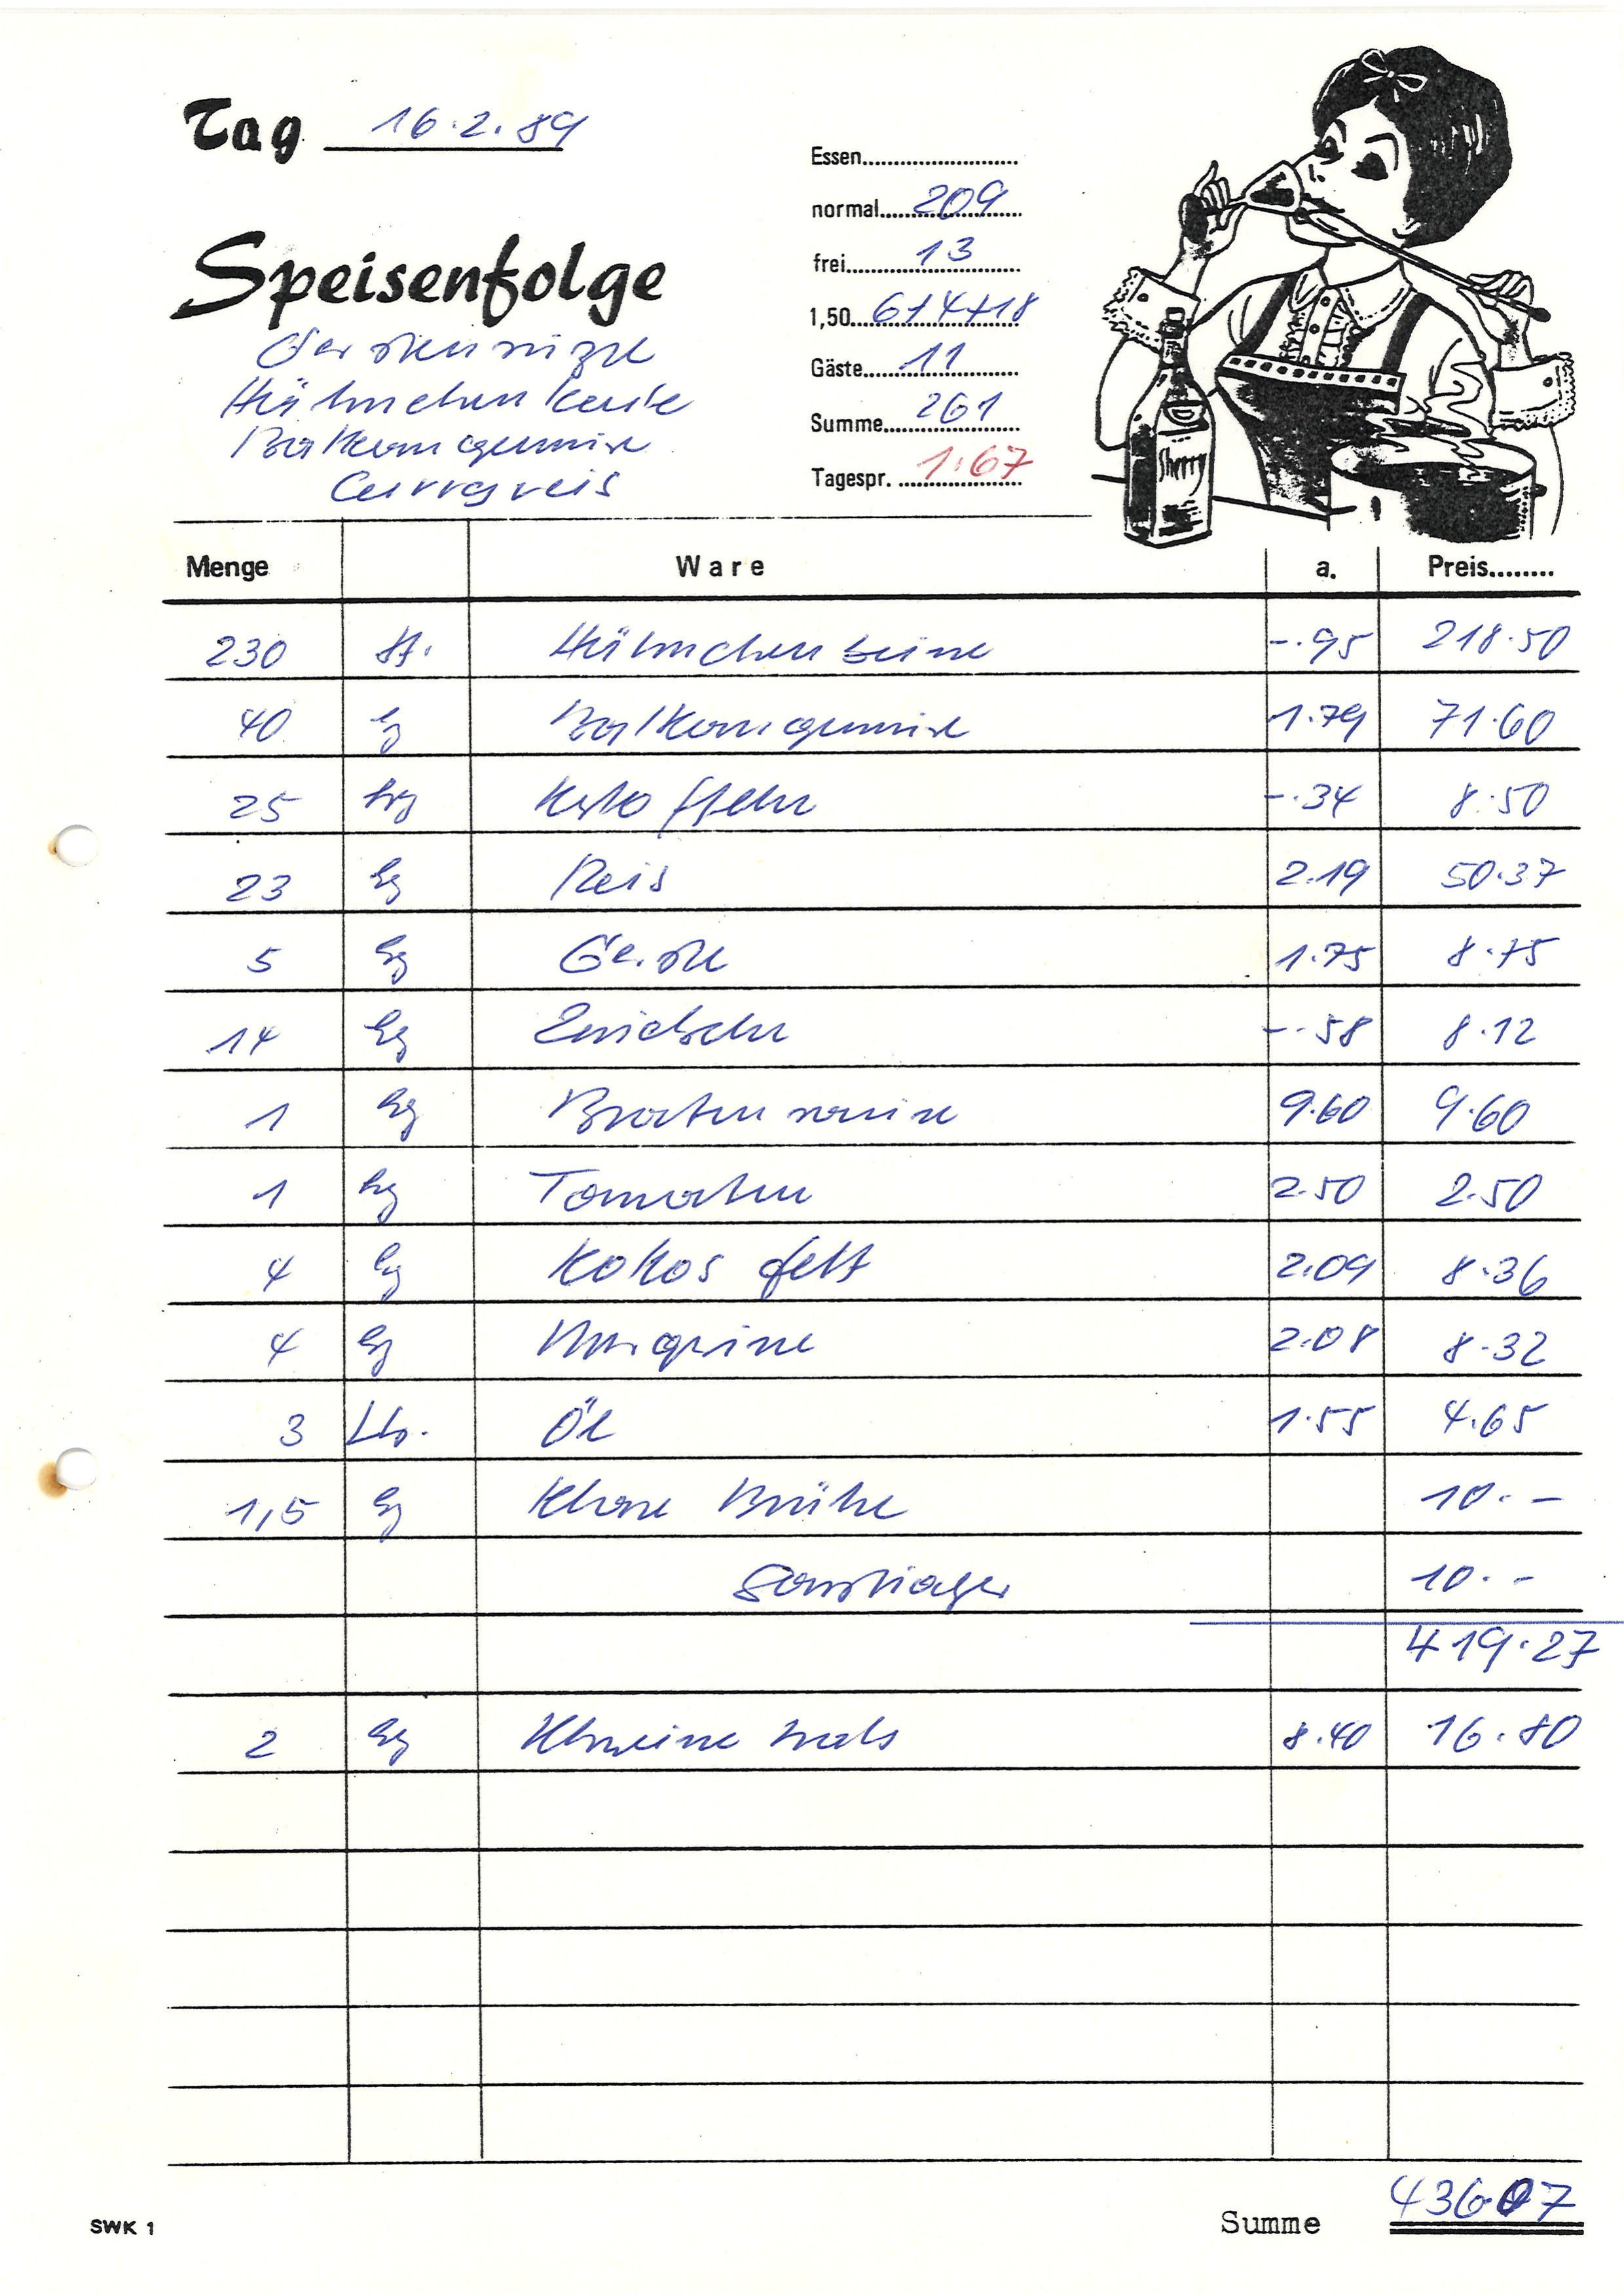 Tag 16.2.89
Speisenfolge
Gerstensuppe
Hähnchenkeule
Balkangemüse
Curryreis
Essen
normal 209
frei 13
1,50 6+4+18
Gäste 11
Summe 261
Tagespr. 1.67
Sherry
Menge Ware a. Preis
230 St. Hähnchenbeine -.95 218.50
40 kg Balkangemüse 1.79 71.60
25 kg Kartoffeln -.34 8.50
23 kg Reis 2.19 50.37
5 kg Gerste 1.75 8.75
14 kg Zwiebeln -.58 8.12
1 kg Bratensauce 9.60 9.60
1 kg Tomaten 2.50 2.50
4 kg Kokosfett 2.09 8.36
4 kg Margarine 2.08 8.32
3 Ltr. Öl 1.55 4.65
1,5 kg Klare Brühe 10.-
Sonstiges 10.-
419.27
2 kg 8.40 16.80
SWK 1
Summe 436.07